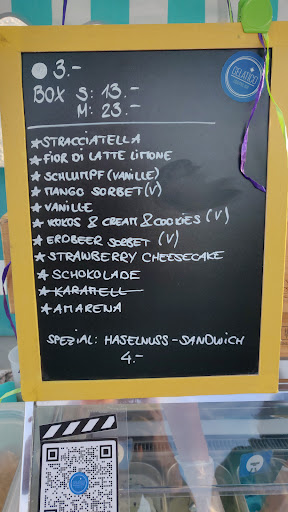 3.-
BOX S: 13.-
M: 23.-
★STRACCIATELLA
★FIOR DI LATTE LIMONE
★SCHLUMPF (VANILLE)
★MANGO SORBET (V)
★VANILLE
★KOKOS & CREAM & COOKIES (V)
★ERDBEER SORBET (V)
★STRAWBERRY CHEESECAKE
★SCHOKOLADE
★KARAMELL
★AMARENA
SPEZIAL: HASELNUSS-SANDWICH
4.-